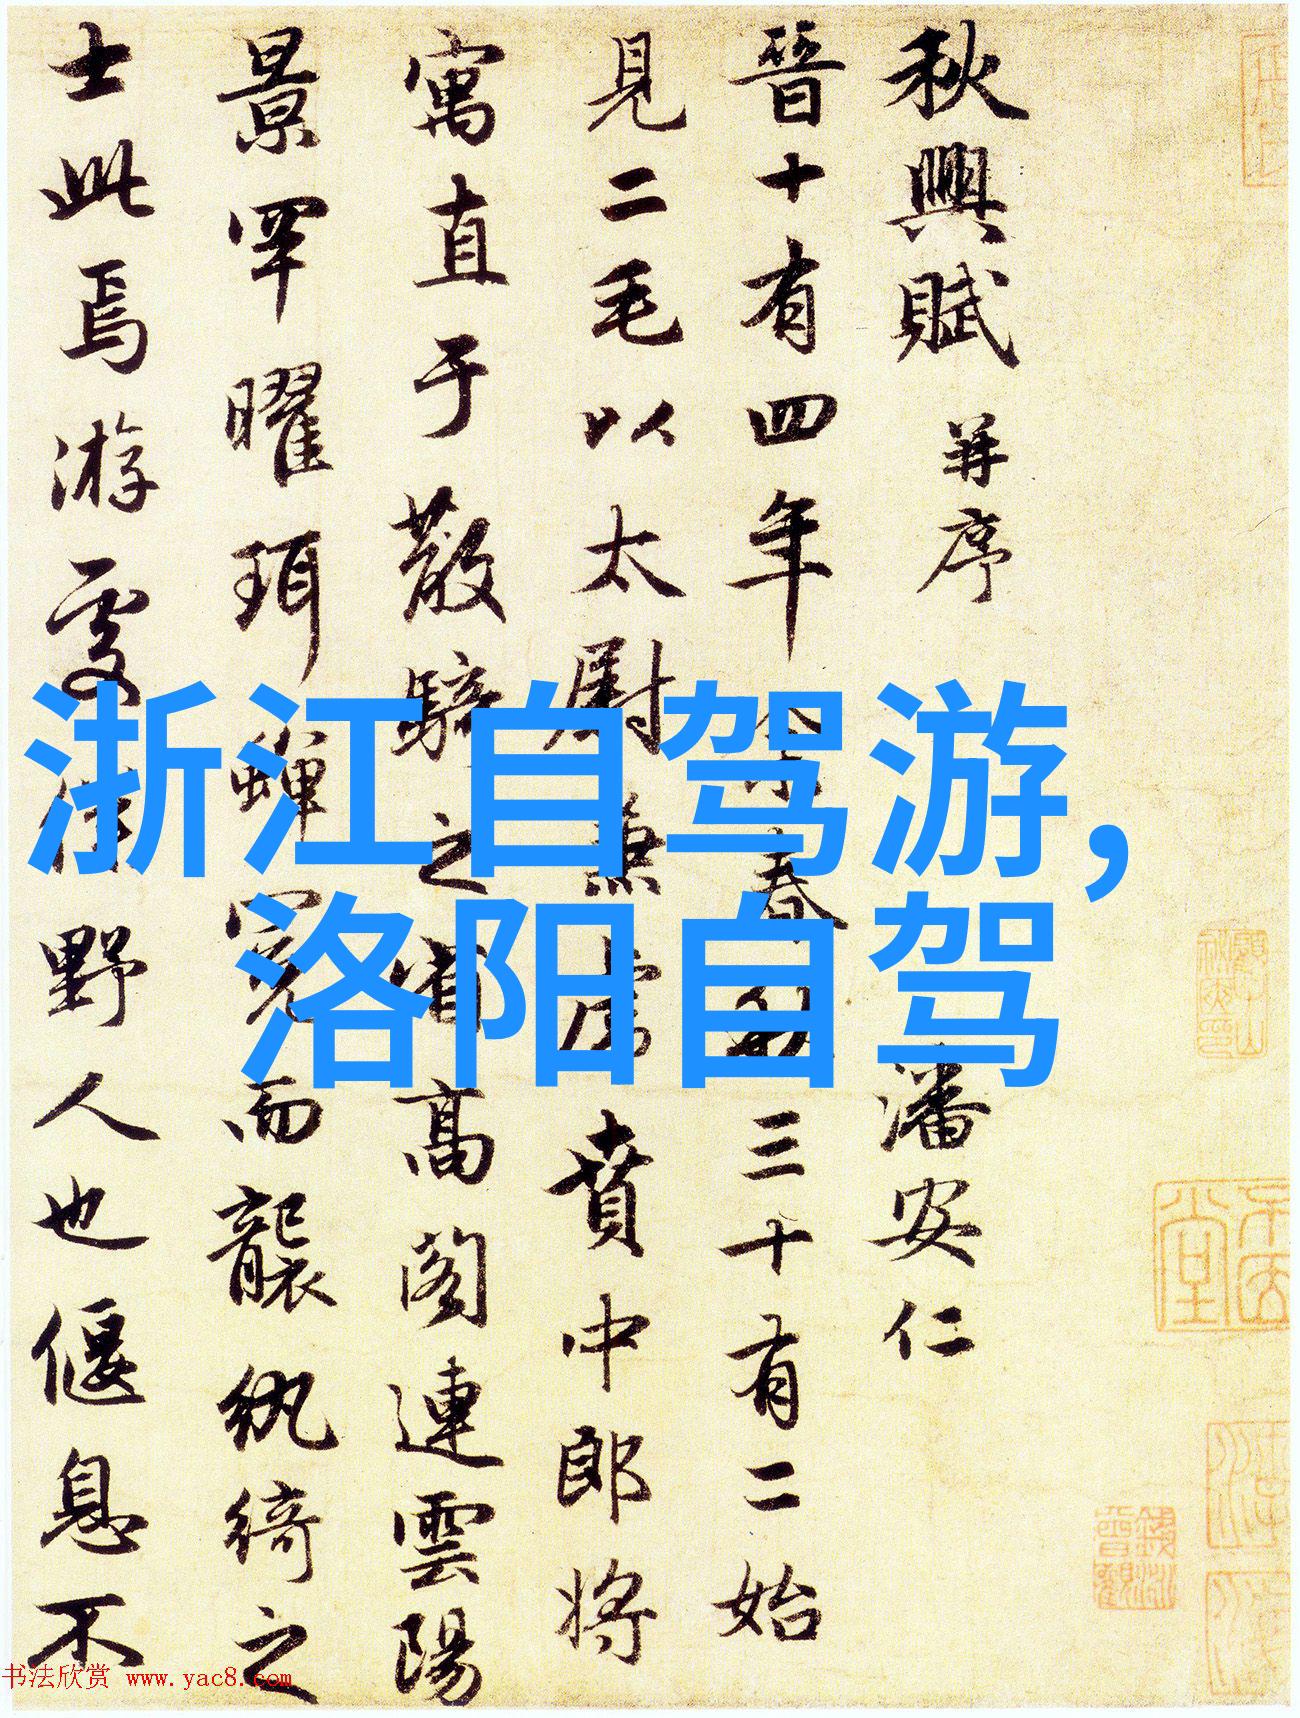 秋興賦 并序 潘安仁
晉十有四年余春秋三十有二始
見二毛以太尉兼虎賁中郎將
寓直于散騎之省高閣連雲陽
景罕曜珥蟬冕而襲紈綺之
士此焉游處僕野人也偃息不
浙江自驾游,
洛阳自驾
书法欣赏 www.yac8.com